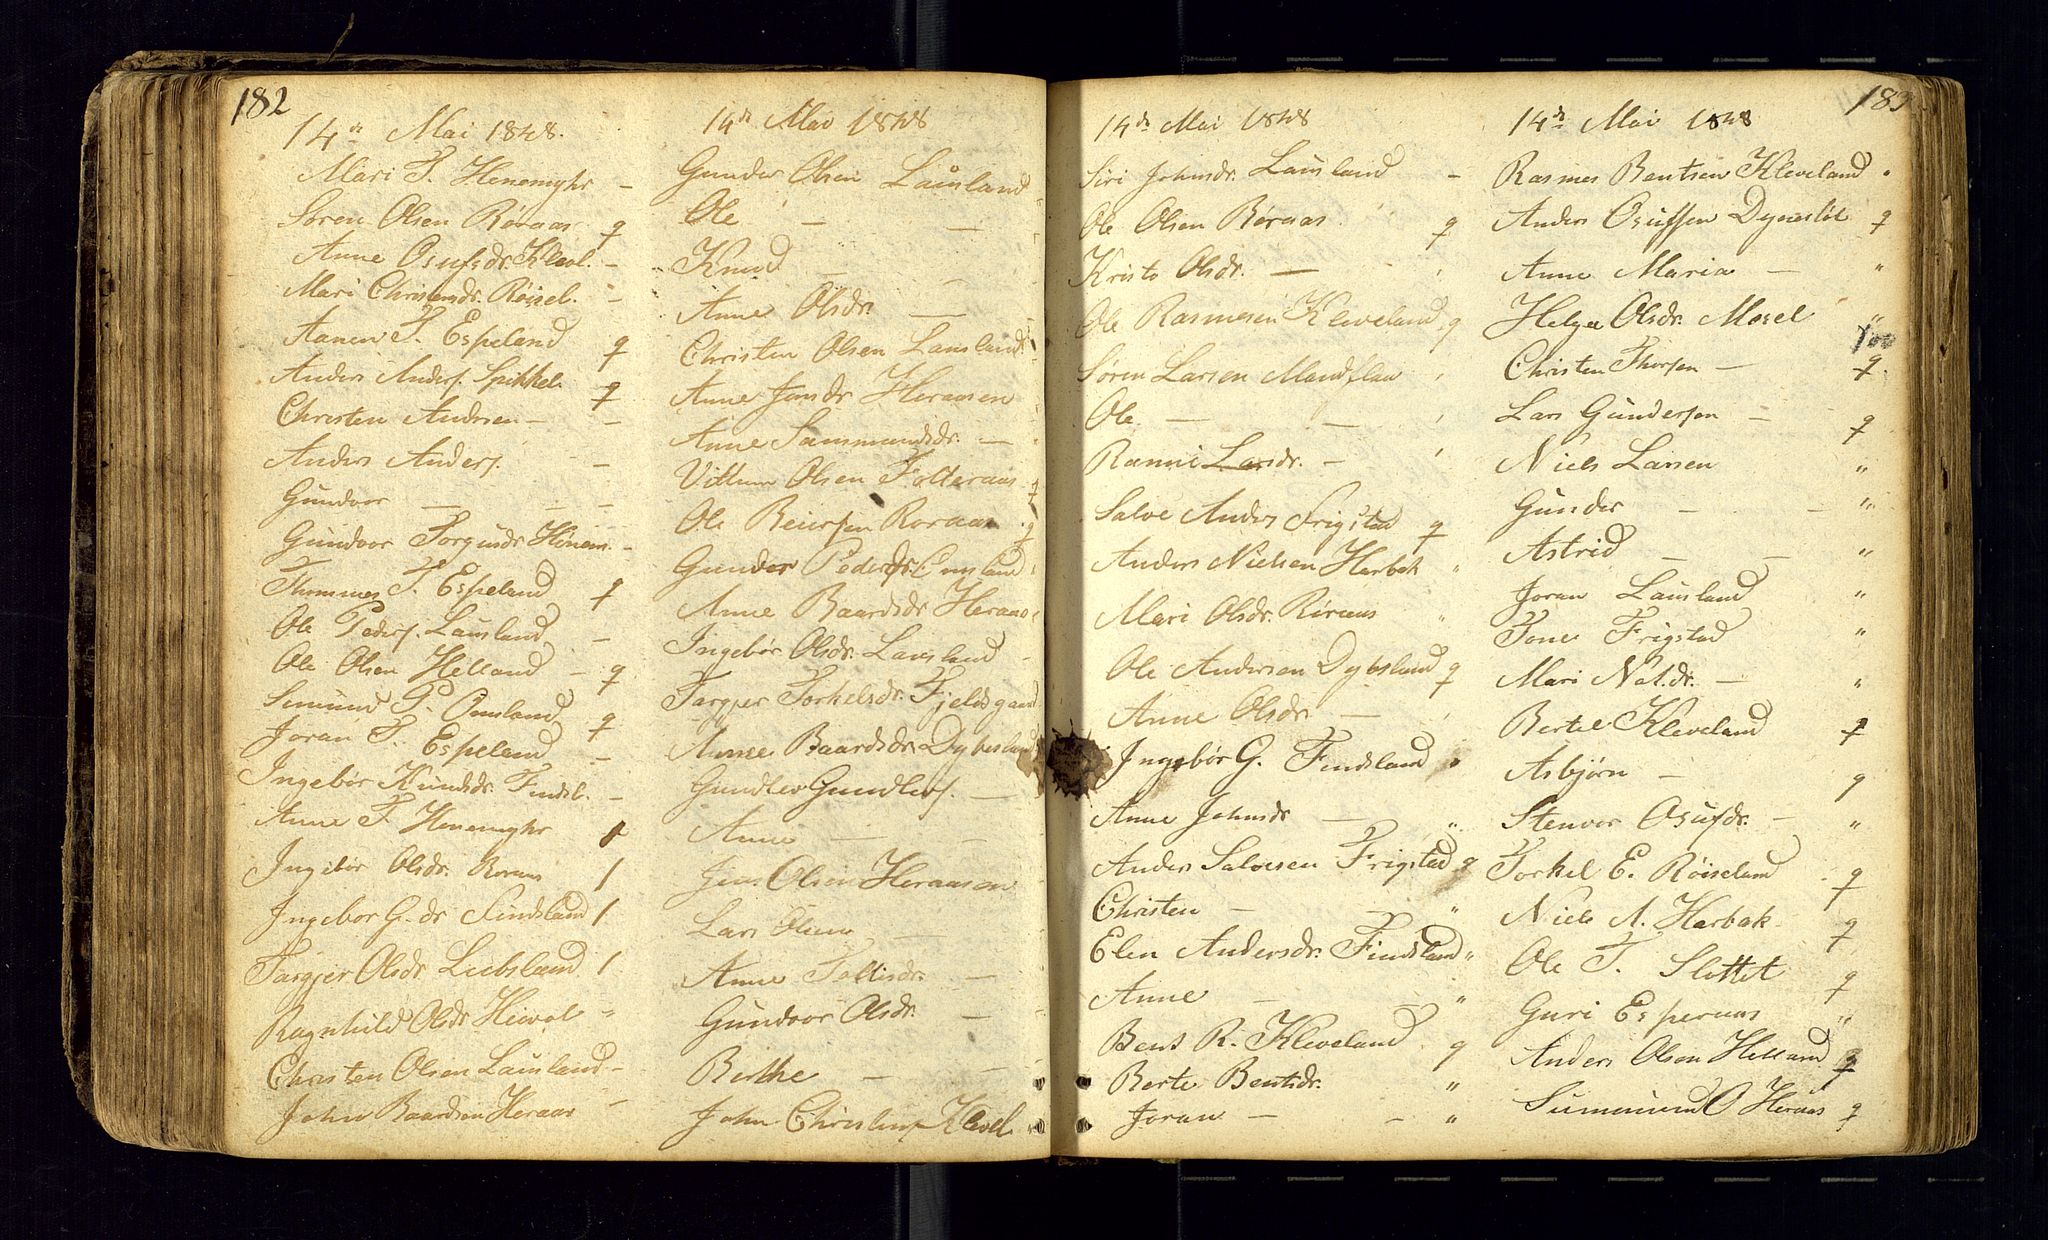 182
14de Mai 1848.
Mari T. Henemyhr -
Søren Olsen Røraas q
Anne Osufsdr. Klevl. -
Mari Christensdr. Røisel. -
Aanen T. Espeland q
Anders Anders. Spikkel. q
Christen Andersen - -
Anders Anders. -
Gundvor - - -
Gundvor Torgusdr Hønem. -
Thommes T. Espeland q
Ole Peders. Lausland -
Ole Olsen Helland - q
Simund P. Omland q
Joran T. Espeland -
Ingebør Knudsdr. Findsl. -
Anne T. Henemyhr 1
Ingebør Olsdr. Roraas 1
Ingebor G.dr Findsland 1
Targjer Olsdr Liebsland 1
Ragnhild Olsdr Hivol "
Christen Olsen Lausland -
John Baardsen Heraas -
14de Mai 1848
Gunder Olsen Lausland
Ole - -
Knud - -
Anne Olsdr. -
Christen Olsen Lausland
Anne Jensdr Heraasen
Anne Sammundsdr. -
Villum Olsen Folleraas q
Ole Reiersen Roraas q
Gunder Peders. Omland
Anne Baardsdr Heraas
Ingebør Olsdr. Lausland -
Targjer Torkelsdr. Fjeldsgaard
Anne Baardsdr. Dybesland
Gundlev Gundlevs. -
Anne - -
Jens Olsen Heraasen
Lars Olsen -
Anne Tellisdr. -
Gundvor Olsdr. -
Birthe - -
John Christens Klevl. "
183
14de Mai 1848
Siri Johnsdr. Lausland -
Ole Olsen Røraas q
Kristo Olsdr. -
Ole Rasmesen Kleveland q
Søren Larsen Mandflaa
Ole - -
Ranni Larsdr. -
Salve Anders Frigstad q
Anders Nielsen Harbak "
Mari Olsdr. Røraas "
Ole Andersen Dybesland q
Anne Olsdr -
Ingebør G. Findsland "
Anne Johnsdr - "
Anders Salvesen Frigstad q
Christen - - "
Elen Andersdr. Findsland "
Anne - - "
Bent R. Kleveland q
Berte Bentsdr. "
Joran - - "
14de Mai 1848
Rasmes Bentsen Kleveland "
Anders Osufsen Dynesløl q
Anne Maria - "
Helge Olsdr. Mosel "
100
Christen Thorsen - q.
Lars Gundersen - q
Niels Larsen "
Gunder - - "
Astrid - - "
Joran Lausland "
Tone Frigstad "
Mari Nat.dr. - "
Bertel Kleveland q
Asbjørn - q
Stenvor Osufsdr. - "
Torkel E. Røiseland q
Niels A. Harbak q
Ole T. Slettet q
Guri Esperaas "
Anders Olsen Helland q
Summund O Heraas q